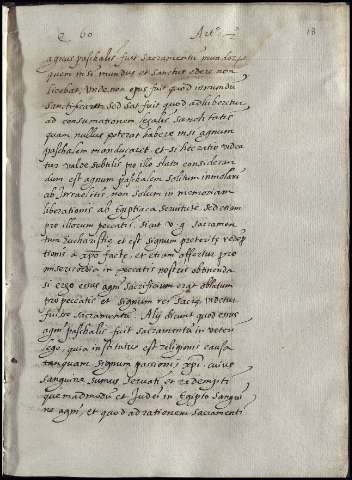 Q. 60 Art.
18
agnus paschalis fuit sacramentū mundorū
quem nisi mundus et sanctus edere non
licebat, unde non opus fuit quod immundū
sanctificaret sed sat fuit quod adhiberetur
ad consumationem legalis sanctitatis
quam nullus poterat habere nisi agnum
paschalem manducaret et si hec ratio videa
tur valde subtilis pro illo statu consideran
dum est agnum paschalem solitum inmolari
ab Israelitis non solum in memoriam
liberationis ab Egiptiaca servitute sed etiam
pro illorum peccatis. sicut v. g. sacramen
tum Eucharistię et est signum preteritę redēp
tionis a xpo factę, et etiam affertur pro
misericordia in peccatis nostris obtinenda
si ergo esus agni sacrificium erat oblatum
pro peccatis et signum rei sacrę videtur
fuisse sacramentū. Alij dicunt quod esus
agni paschalis fuit sacramentū in veteri
lege, quia institutus est religionis causa
tanquam signum passionis xpi. cuius
sanguine sumus servati et redempti
quemadmodū et Judei in Egipto sangui
ne agni, et quod ad rationem sacramenti